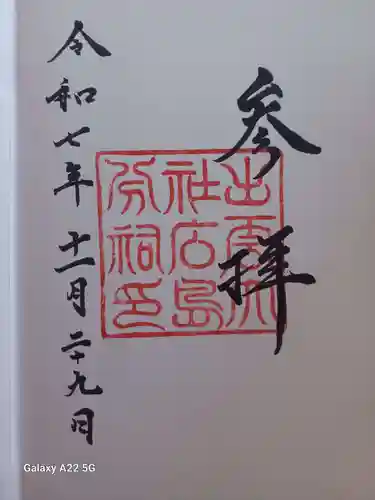 参拝
出雲大
社広島
分祠印
令和七年十一月二十九日
Galaxy A22 5G